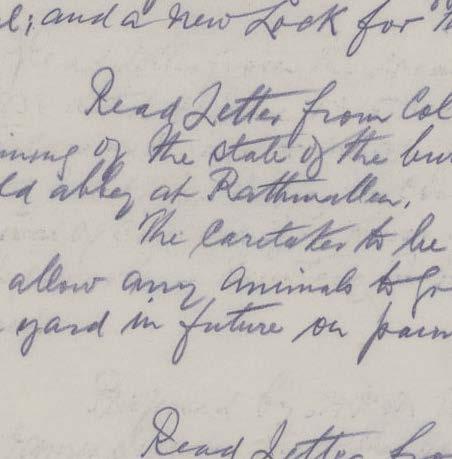 ; and a new Lock for
Read Letter from Col
ning of the state of the bur
ld abbey at Rathmullen.
The Caretaker to be
allow any animals to go
yard in future on pain
Read Letter fro